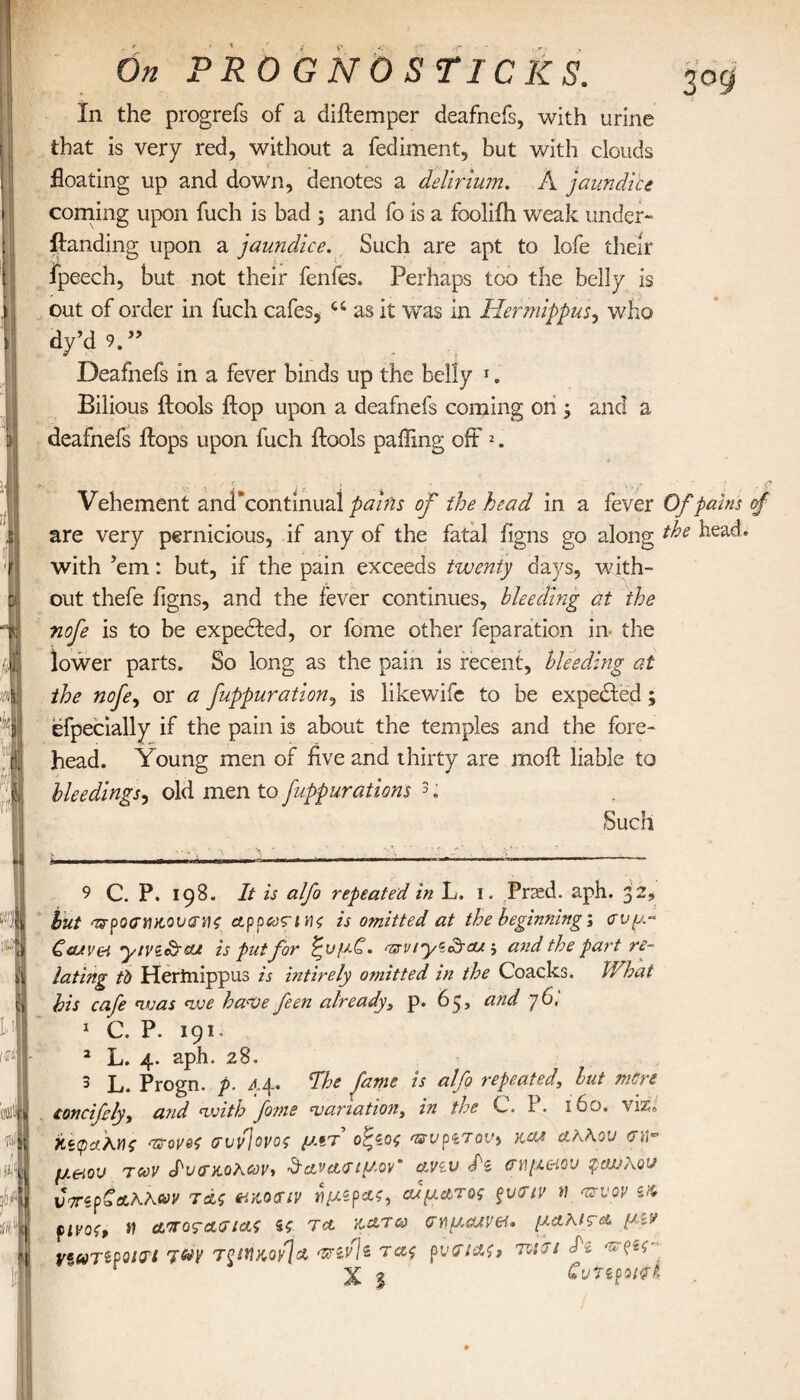 On PROGNOSTICKS.
309
In the progreſs of a diſtemper deafneſs, with urine
that is very red, without a ſediment, but with clouds
floating up and down, denotes a delirium. A jaundice
coming upon ſuch is bad ; and ſo is a fooliſh weak under-
ſtanding upon a jaundice. Such are apt to loſe their
ſpeech, but not their ſenſes. Perhaps too the belly is
out of order in ſuch caſes, “ as it was in Hermippus, who
dy’d 9.”
Deafneſs in a fever binds up the belly 1.
Bilious ſtools ſtop upon a deafneſs coming on ; and a
deafneſs ſtops upon ſuch ſtools paſſing off 2.
Vehement and continual pains of the head in a fever
Of pains of
are very pernicious, if any of the fatal ſigns go along
the head.
with ’em : but, if the pain exceeds twenty days, with-
out theſe ſigns, and the fever continues, bleeding at the
noſe is to be expected, or ſome other ſeparation in the
lower parts. So long as the pain is recent, bleeding at
the noſe, or a ſuppuration, is likewiſe to be expected ;
eſpecially if the pain is about the temples and the fore-
head. Young men of five and thirty are moſt liable to
bleedings, old men to ſuppurations 3.
Such
9 C. P. 198. It is alſo repeated in L. 1. Præd. aph. 32,
but ϖροσηκουσης αρρωςιης is omitted at the beginning ; συμ-
ϐαινει γινεϑαι is put for ξυμϐ. ϖνιγεϑαι ; and the part re-
lating to Hermippus is intirely omitted in the Coacks. What
his caſe was we have ſeen already, p. 65, and 76.
1 C. P. 191.
2 L. 4. aph. 28.
3 L. Progn. p. 44. The ſame is alſo repeated, but more
conciſely, and with ſome variation, in the C. P. 160. viz.
κεφαλης ϖονος συνλονος μετ’ οξεος ϖυρετου, και αλλου ση-
μειου των δυσκολων, ϑανασιμον· ανευ δε σημειου φαυλου
υπερϐαλλων τας εικοσιν ημερας, αιματος ρυσιν η ϖυον εκ
ρινος, η αποςασιας ες τα κατω σημαινει. μαλιςα μεν
νεωτεροισι των τριηκονλα ϖενλε τας ρυσιας, τοισι δε ϖρεσ-
X 3
ϐυτεροισι